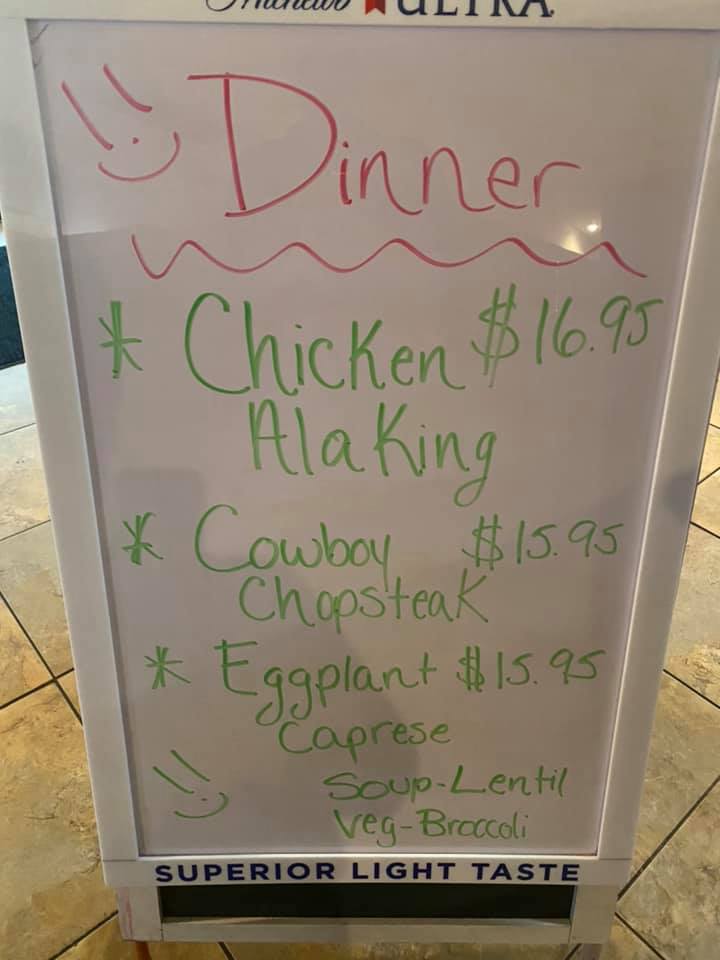 Michelob ULTRA
Dinner
* Chicken $16.95
Ala King
* Cowboy $15.95
Chopsteak
* Eggplant $15.95
Caprese
Soup-Lentil
Veg-Broccoli
SUPERIOR LIGHT TASTE